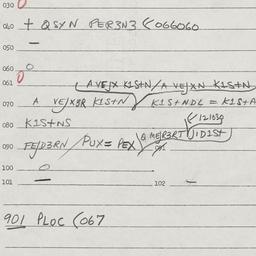 030
040 + QSYN PER3N3 (066060
050 —
060 0
061 0 AVEJX K1StN/A VEJXN K1StN
070 A VEJX3R K1StN/ K1StNDL = K1StA
080 K1StNS (/121039
090 FEJD3RN / PUX = PEX \Q MEJR3RT \J1D1St
091
100 0
101 — 102 —
901 PLOC (067